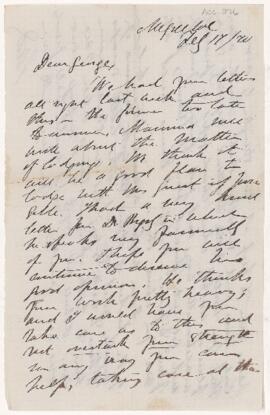 Dear George,
We had your letters
all right last week and
this - the former too late
to answer. Mamma will
write about the matter
of lodging. We think it
will be a good plan to
lodge with Mrs if pos-
sible. I had a very kind
letter from Dr in which
he speaks very favourably
of you. I hope you will
continue to deserve his
good opinion. He thinks
your work pretty heavy;
and I would have you
take care as to this and
not overtask your strength
in any way you can
help; taking care at the